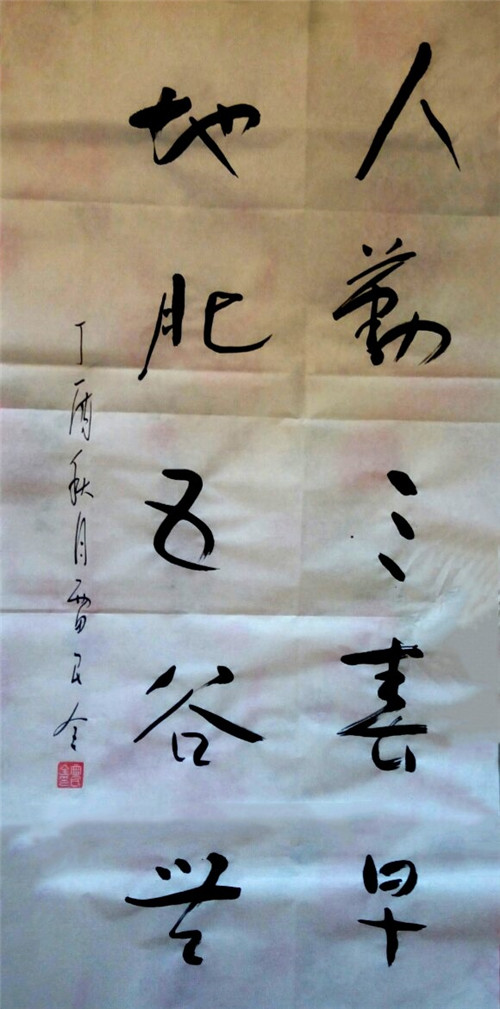 人勤三春早
地肥五谷豐
丁酉秋月雷民全